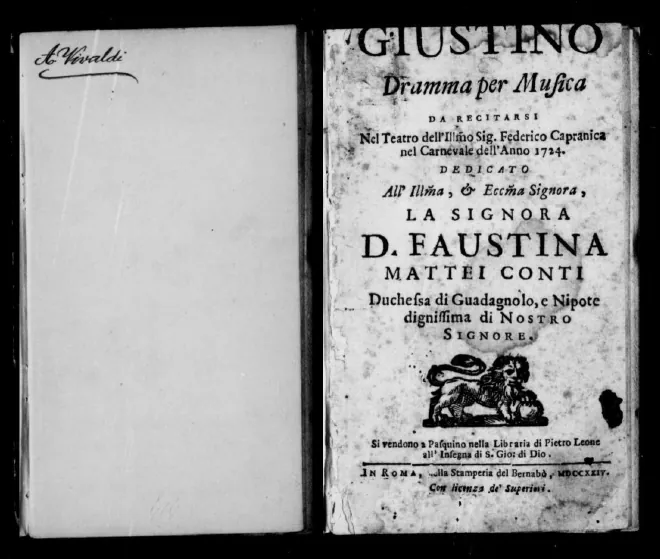 A. Vivaldi
GIUSTINO
Dramma per Muſica
DA RECITARSI
Nel Teatro dell'Illm̃o Sig. Federico Capranica
nel Carnevale dell'Anno 1724.
DEDICATO
All' Illm̃a, & Eccm̃a Signora,
LA SIGNORA
D. FAUSTINA
MATTEI CONTI
Ducheſsa di Guadagnolo, e Nipote
digniſſima di NOSTRO
SIGNORE.
Si vendono a Paſquino nella Libraria di Pietro Leone
all' Inſegna di S. Gio: di Dio.
IN ROMA, nella Stamperia del Bernabò, MDCCXXIV.
Con licenza de' Superiori.